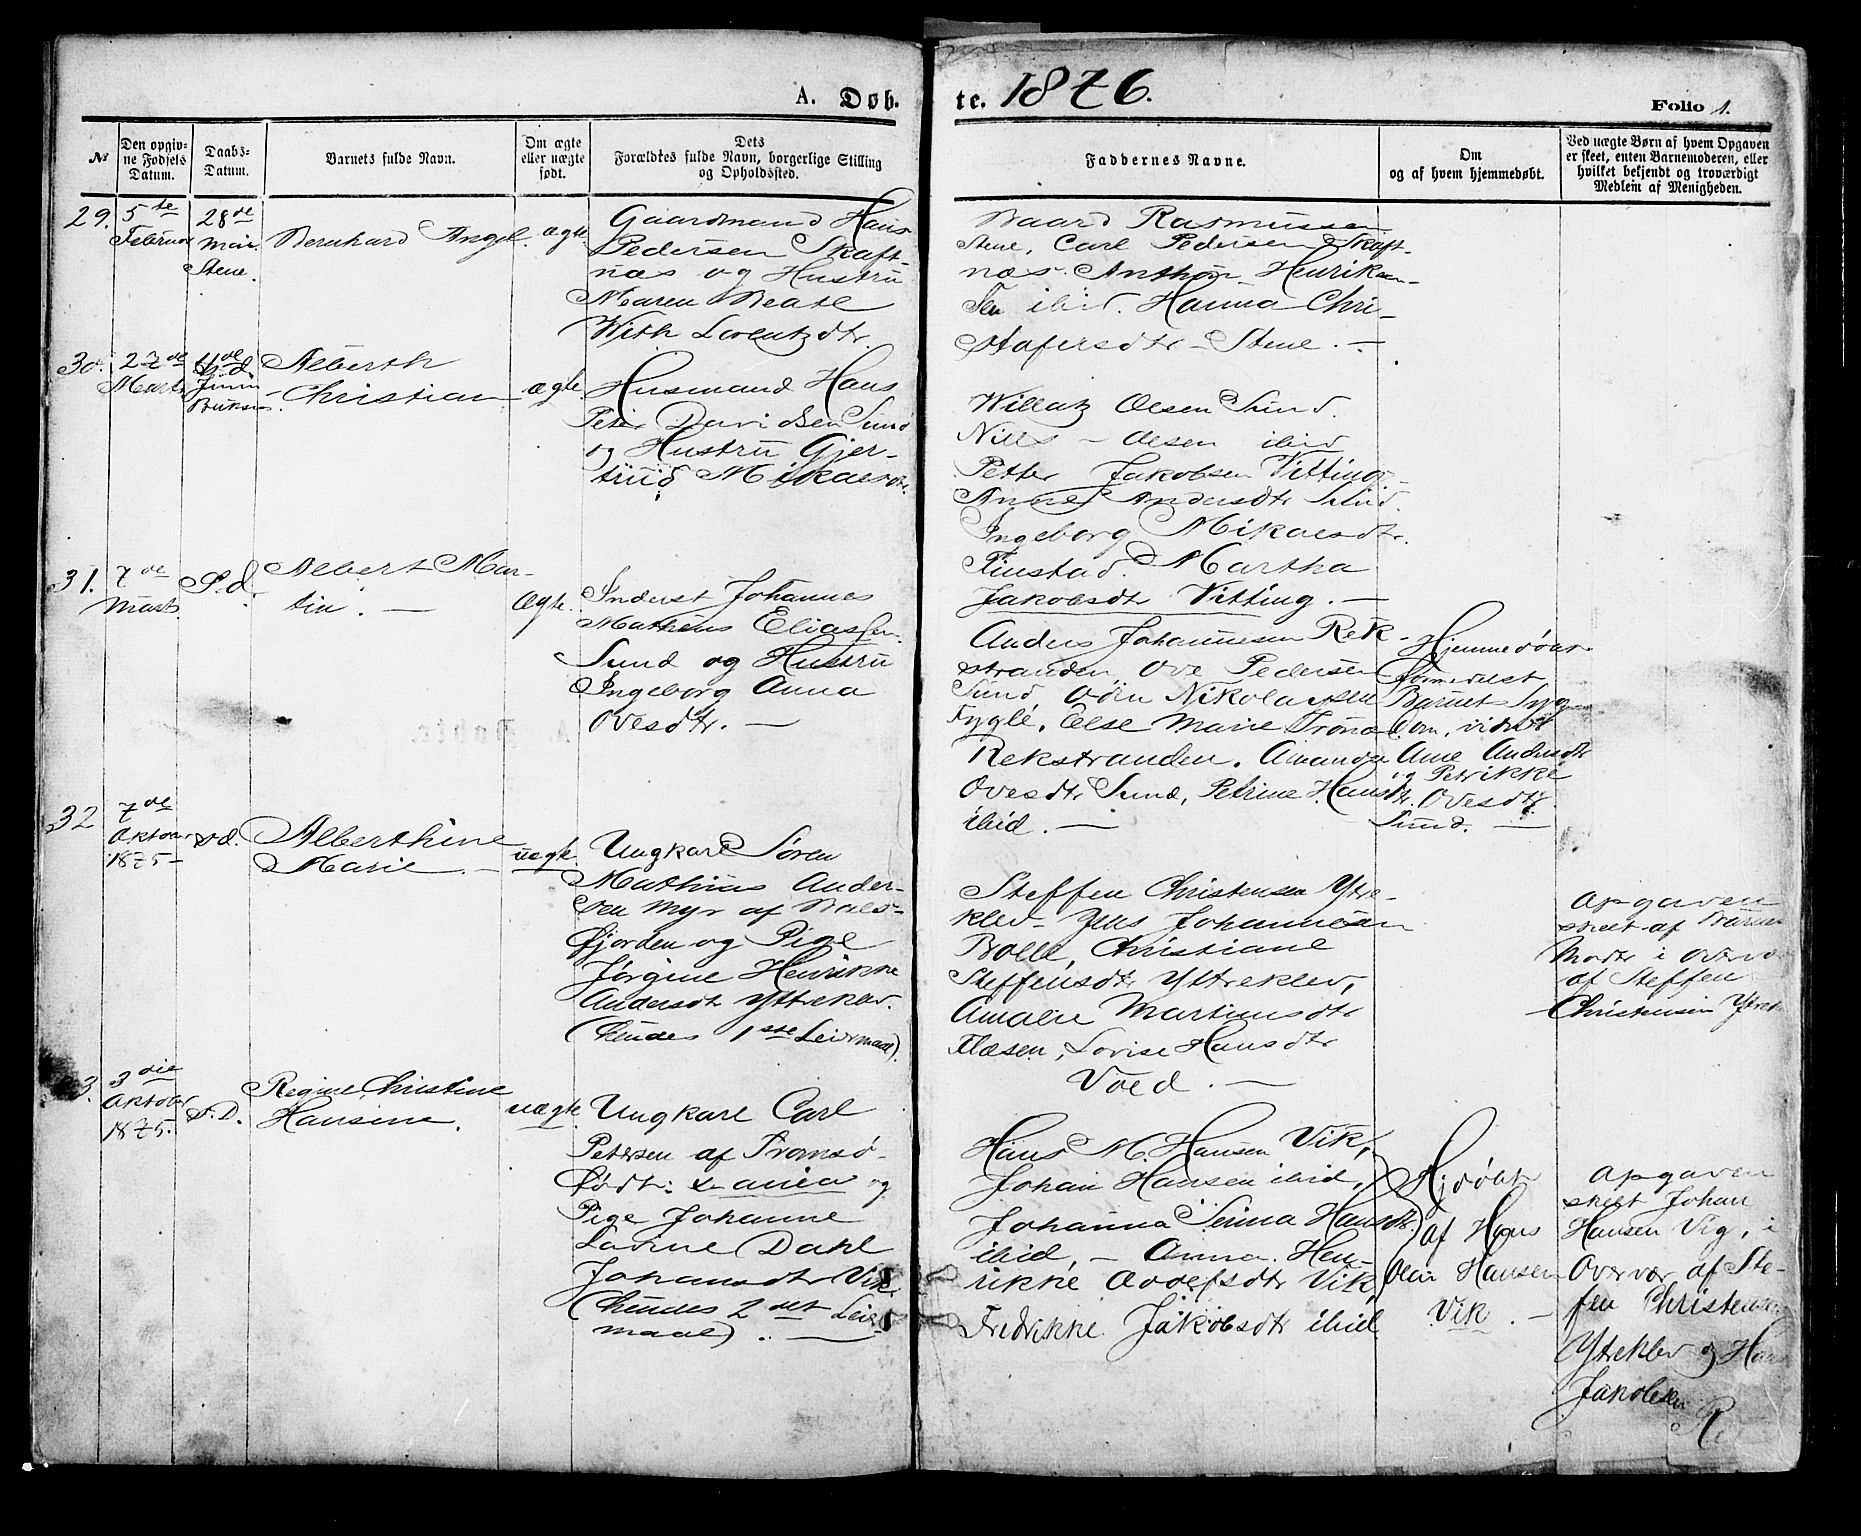 A. Døb.
te. 1876.
Folio 1.
№
Den opgiv-
ne Fødsels
Datum.
Daabs-
Datum.
Barnets fulde Navn.
Om ægte
eller uægte
født.
Dets
Forældres fulde Navn, borgerlige Stilling
og Opholdssted.
Faddernes Navne.
Om
og af hvem hjemmedøbt.
Ved uægte Børn af hvem Opgaven
er skeet, enten Barnemoderen, eller
hvilket bekjendt og troværdigt
Medlem af Menigheden.
29.
5te
Februar
28de
Mai
Stene.
Bernhard Angel.
ægte
Gaardmand Hans
Pedersen Skaft-
næs og Hustru
Maren Beate
With Lorentzdtr.
Baard Rasmussen
Stene, Carl Pedersen Skaft-
næs. Anthon Henrik-
sen ibid. Hanna Chri-
stofersdtr Stene. –
30.
27de
Marts
4de
Juni
Buksn.
Alberth
Christian
ægte
Husmand Hans
Peter Davidsen Sund
og Hustru Gjer-
trud Mikaelsdtr.
Willatz Olsen Sund.
Nils – Olsen ibid
Petter Jakobsen Vitting,
Anne Andersdtr Sund.
Ingeborg Mikaelsdtr.
Finstad. Martha
Jakobsdtr Vitting. –
31.
7de
Marts
S.d.
Albert Mar-
tin. –
Ægte.
Inderst Johannes
Matheus Eliassen
Sund og Hustru
Ingeborg Anna
Ovesdtr. –
Anders Johannesen Rek-
stranden, Ove Pedersen
Sund, Jörn Nikolaysen
Fygle, Else Marie Trona
Rekstranden. Amanda
Ovesdtr Sund, Petrine Hansdtr.
ibid. –
Hjemmedöbt
formedelst
Barnets Syg-
dom, vidnet
Ane Andersdtr
og Petrikke
Ovesdtr.
Sund. –
32
7de
Oktober
1875 –
s.d.
Alberthine
Marie. –
uægte.
Ungkarl Sören
Mathias Ander-
sen Myr af Bals-
fjorden og Pige
Jørgine Henrikke
Andersdtr Yttreklev.
(hendes 1ste Leiermaal).
Steffen Christensen Ytre-
klev – Jens Johannesen
Bolle, Christiane
Steffensdtr Yttreklev,
Amalie Martinusdtr
Flæsen, Lovise Hansdtr
Voed. –
Opgaven
skeet af Barne
Moder i Overvær
af Steffen
Christensen Ytrek
33.
3die
Oktober
1875.
S.D.
Regine Christine
Hansine.
uægte.
Ungkarl Carl
Petersen af Tromsö
Födt: og
Pige Johanne
Lovine Dahl
Johansdtr Vik.
(hendes 2det Leier-
maal). –
Hans M. Hansen Vik,
Johan Hansen ibid,
Johanna Serina Hansdtr.
ibid, – Anna Hen-
rikke Adolfsdtr Vik,
Fredrikke Jakobsdtr ibid
Hjdöbt
af Hans
Olai Hansen
Vik. –
Opgaven
skeet Johan
Hansen Vig, i
Overvær af Ste-
fen Christensen
Ytreklev og Hans
Jakobsen